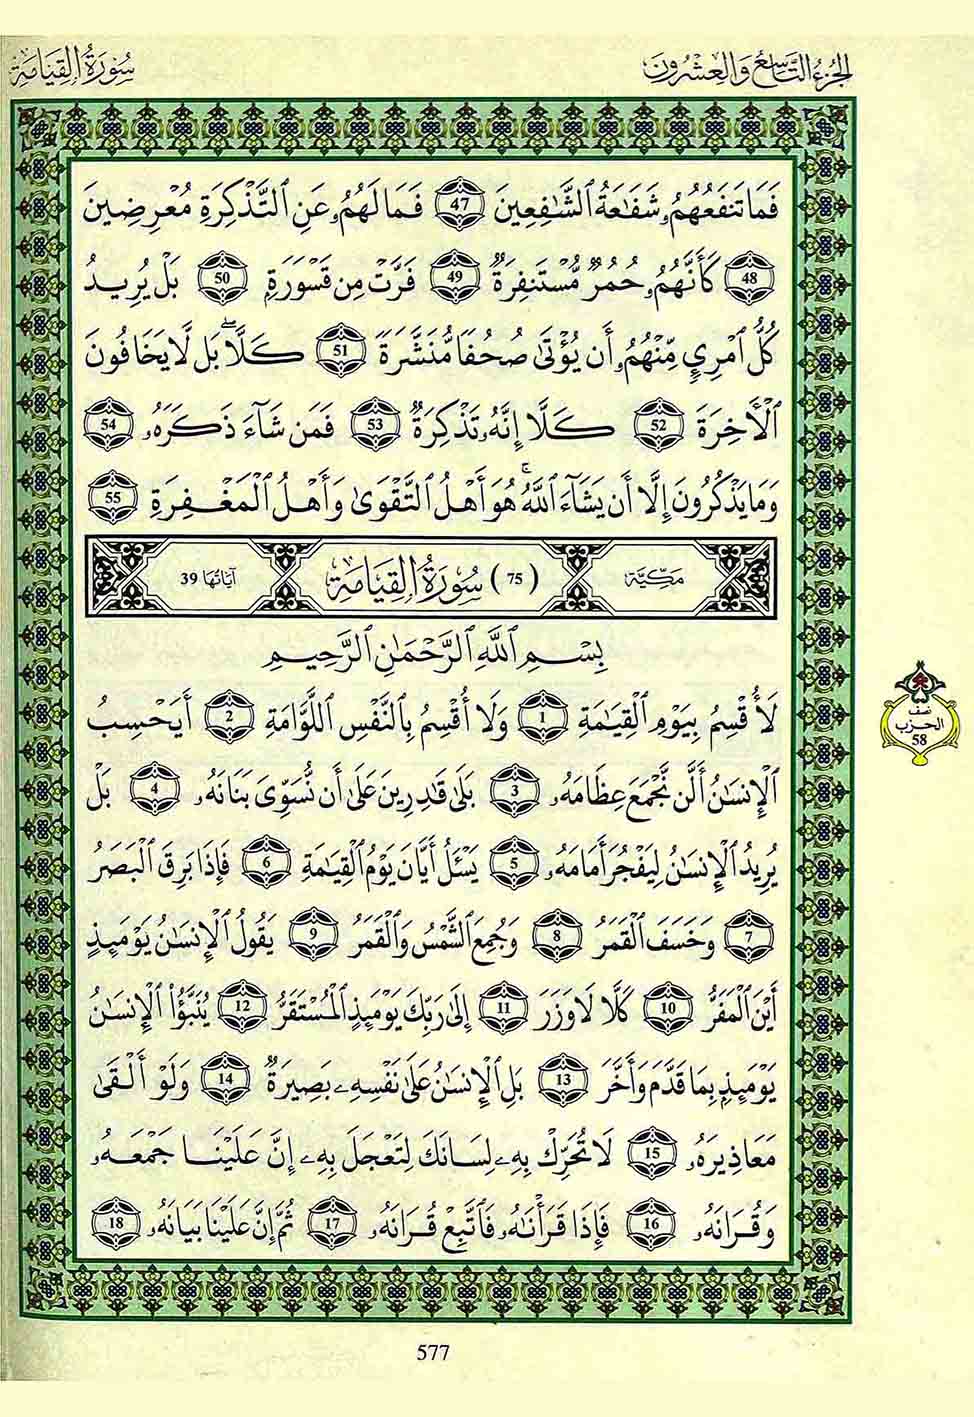 الجزء التاسع والعشرون
سورة القيامة
فَمَا تَنفَعُهُمُۥ شَفَٰعَةُ ٱلشَّٰفِعِينَ 47 فَمَا لَهُمُۥ عَنِ ٱلتَّذْكِرَةِ مُعْرِضِينَ
48 كَأَنَّهُمُۥ حُمُرٌ مُّسْتَنفِرَةٌ 49 فَرَّتْ مِن قَسْوَرَةٍ 50 بَلْ يُرِيدُ
كُلُّ ٱمْرِيٍٕ مِّنْهُمُۥ أَن يُؤْتَىٰ صُحُفًا مُّنَشَّرَةً 51 كَلَّا ۖ بَل لَّا يَخَافُونَ
ٱلْأَخِرَةَ 52 كَلَّا إِنَّهُۥ تَذْكِرَةٌ 53 فَمَن شَآءَ ذَكَرَهُۥ 54
وَمَا يَذْكُرُونَ إِلَّا أَن يَشَآءَ ٱللَّهُ ۚ هُوَ أَهْلُ ٱلتَّقْوَىٰ وَأَهْلُ ٱلْمَغْفِرَةِ 55
مكية (75) سورة القيامة آياتها 39
بِسْمِ ٱللَّهِ ٱلرَّحْمَٰنِ ٱلرَّحِيمِ
لَأُقْسِمُ بِيَوْمِ ٱلْقِيَٰمَةِ 1 وَلَا أُقْسِمُ بِٱلنَّفْسِ ٱللَّوَّامَةِ 2 أَيَحْسِبُ
ٱلْإِنسَٰنُ أَلَّن نَّجْمَعَ عِظَامَهُۥ 3 بَلَىٰ قَٰدِرِينَ عَلَىٰ أَن نُّسَوِّىَ بَنَانَهُۥ 4 بَلْ
يُرِيدُ ٱلْإِنسَٰنُ لِيَفْجُرَ أَمَامَهُۥ 5 يَسْـَٔلُ أَيَّانَ يَوْمُ ٱلْقِيَٰمَةِ 6 فَإِذَا بَرِقَ ٱلْبَصَرُ
7 وَخَسَفَ ٱلْقَمَرُ 8 وَجُمِعَ ٱلشَّمْسُ وَٱلْقَمَرُ 9 يَقُولُ ٱلْإِنسَٰنُ يَوْمَئِذٍ
أَيْنَ ٱلْمَفَرُّ 10 كَلَّا لَا وَزَرَ 11 إِلَىٰ رَبِّكَ يَوْمَئِذٍ ٱلْمُسْتَقَرُّ 12 يُنَبَّؤُا۟ ٱلْإِنسَٰنُ
يَوْمَئِذٍ بِمَا قَدَّمَ وَأَخَّرَ 13 بَلِ ٱلْإِنسَٰنُ عَلَىٰ نَفْسِهِۦ بَصِيرَةٌ 14 وَلَوْ أَلْقَىٰ
مَعَاذِيرَهُۥ 15 لَا تُحَرِّكْ بِهِۦ لِسَانَكَ لِتَعْجَلَ بِهِۦ إِنَّ عَلَيْنَا جَمْعَهُۥ
وَقُرَانَهُۥ 16 فَإِذَا قَرَأْنَٰهُۥ فَٱتَّبِعْ قُرَانَهُۥ 17 ثُمَّ إِنَّ عَلَيْنَا بَيَانَهُۥ 18
نصف
الحزب
58
577